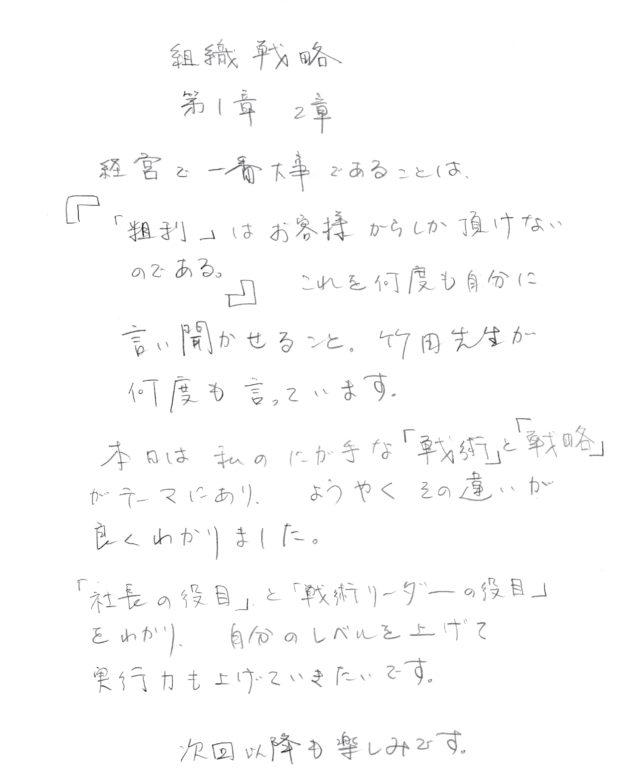 組織戦略
第1章 2章
経営で一番大事であることは、
『「粗利」はお客様からしか頂けない
のである。』 これを何度も自分に
言い聞かせること。竹田先生が
何度も言っています。
本日は私のにが手な「戦術」と「戦略」
がテーマにあり、ようやくその違いが
良くわかりました。
「社長の役目」と「戦術リーダーの役目」
をわかり、自分のレベルを上げて
実行力も上げていきたいです。
次回以降も楽しみです。